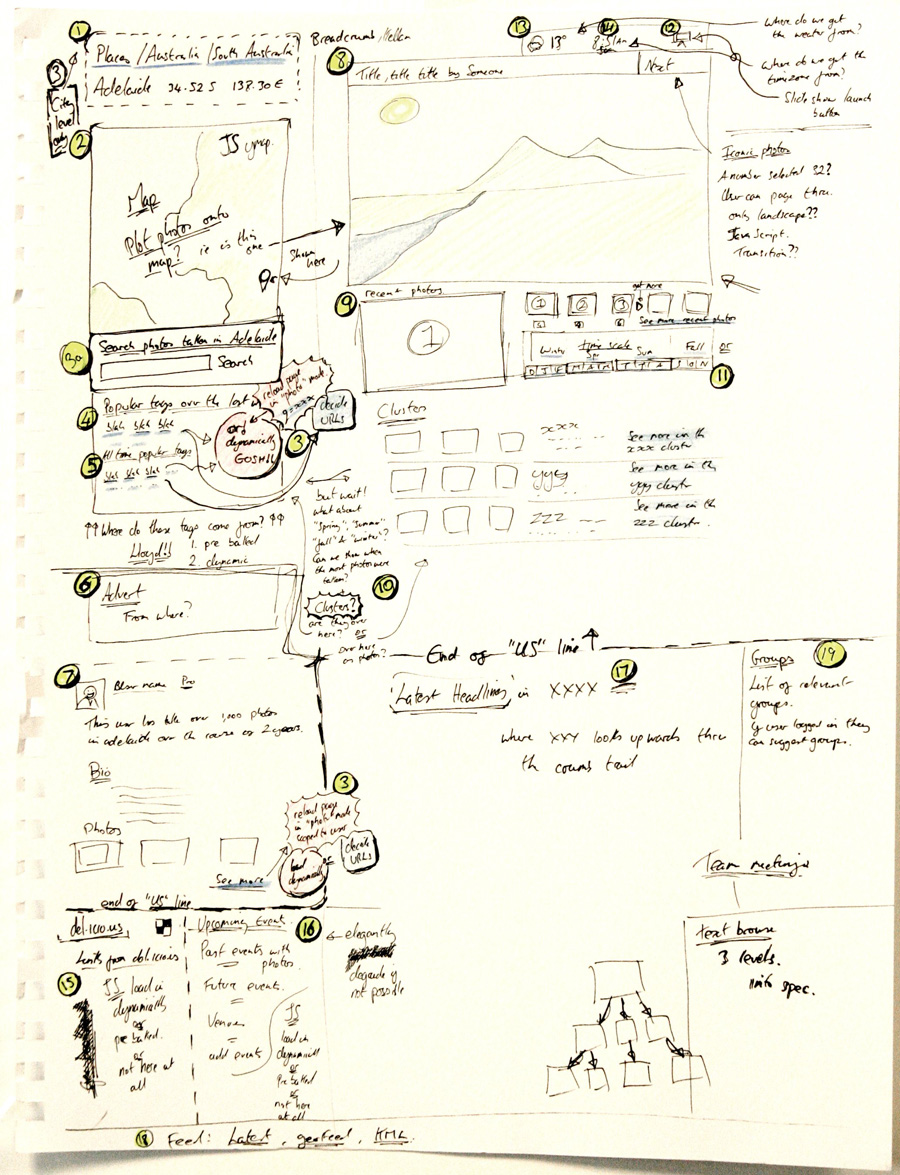 1
Places / Australia / South Australia
Adelaide 34.52 S 138.30 E
3
City level only
Breadcrumbs,
13
13°
14
12
Where do we get
the weather from?
Where do we get the
timezone from?
Slide show launch
button
8
Title, title title by Someone
Next
2
JS ymap.
Map
Plot photos onto
map? ie is this
one
Shown
here
Iconic photos
A number selected 32?
User can page thru.
only landscape??
JavaScript.
Transition??
9
recent photos
1
1 2 3
get more
See more recent photos
time scale
Winter Spr Sum Fall
D J F M A M J J A S O N
or
11
3a
Search photos taken in Adelaide
Search
4
Popular tags over the last
blah blah blah
5
All time popular tags
blah blah blah
reload page
in "photo" mode.
q=xxx
or
dynamically
GOSH!!
3
decide
URLs
Cluster
xxx
See more in the
xxx cluster
yyy
See more in the
yyy cluster
zzz
See more in the
zzz cluster.
Where do these tags come from?
Lloyd!!
1. pre baked
2. dynamic
but wait!
what about
"Spring", "Summer"
"fall" & "winter"?
Can we show when
the most photos were
taken?
10
Clusters?
are they over
here? or
over here
as photos?
6
Advert
From where?
End of "US" line
7
User name Pro
This user has take over 1,000 photos
in adelaide over th course of 2 years.
Bio
Photos
See more
end of "US" line
3
reload page
in "photo" mode
scoped to user
or
load
dynamically
decide
URLs
17
'Latest Headlines' in XXXX
where XXY looks upwards thru
th crumb trail
19
Groups
List of relevant
groups.
If user logged in they
can suggest groups.
Team meetings
15
del.icio.us
Links from del.icio.us
JS load in
dynamically
or
pre baked.
or
not here at
all
16
Upcoming Events.
Past events with
photos.
Future events.
Venues
add events
JS
load in
dynamically
or
pre baked
or
not here
at all
elegantly
degrade if
not possible
Text browse
3 levels.
info spec.
18
Feed: Latest, geofeed, KML.